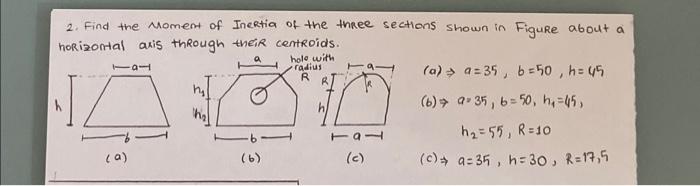 2. Find the Moment of Inertia of the three sections shown in Figure about a
horizontal axis through their centroids.
a
h
b
(a)
a
hole with
radius
R
h₁
h₂
b
(b)
a
R
R
h
a
(c)
(a) → a=35, b=50, h=45
(b) → a=35, b=50, h₁=45,
h₂=55, R=10
(c) → a=35, h=30, R=17,5